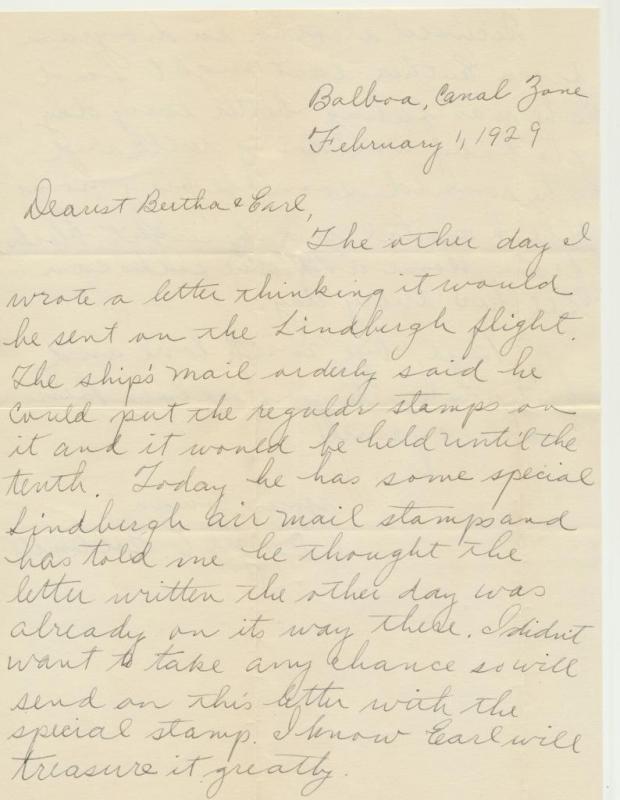 Balboa, Canal Zone
February 1, 1929
Dearest Bertha & Earl,
The other day I
wrote a letter thinking it would
be sent on the Lindbergh flight.
The ship's mail orderly said he
could put the regular stamps on
it and it would be held until the
tenth. Today he has some special
Lindbergh air mail stamps and
has told me he thought the
letter written the other day was
already on its way there. I didn't
want to take any chance so will
send on this letter with the
special stamp. I know Earl will
treasure it greatly.